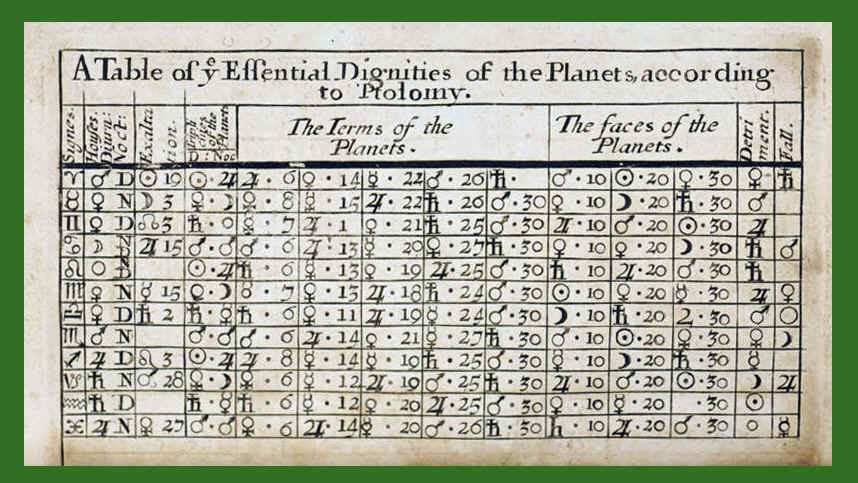 A Table of yͤ Eſſential Dignities of the Planets, according
to Ptolomy.
Signes.
Houses.
Diurn:
Noct:
Exalta
tion.
of the
Planets
D: Noc
The Terms of the
Planets.
The faces of the
Planets.
Detri
ment.
Fall.
♈ ♂ D ☉ 19 ☉ · ♃ ♃ · 6 ♀ · 14 ☿ · 22 ♂ · 26 ♄ · ♂ · 10 ☉ · 20 ♀ · 30 ♀ ♄
♉ ♀ N ☽ 3 ♀ · ☽ ♀ · 8 ☿ · 15 ♃ · 22 ♄ · 26 ♂ · 30 ♀ · 10 ☽ · 20 ♄ · 30 ♂
♊ ♀ D ☊ 3 ♄ · 7 ♃ · 1 ♀ · 21 ♄ · 25 ♂ · 30 ♃ · 10 ♂ · 20 ☉ · 30 ♃
♋ ☽ N ♃ 15 ♂ · ♂ ♂ · 6 ♃ · 13 ☿ · 20 ♀ · 27 ♄ · 30 ♀ · 10 ♀ · 20 ☽ · 30 ♄ ♂
♌ ☉ · ♃ ♄ · 6 ♀ · 13 ♀ · 19 ♃ · 25 ♂ · 30 ♄ · 10 ♃ · 20 ♂ · 30 ♄
♍ ♀ N ☿ 15 ♀ · ☽ · 7 ♀ · 13 ♃ · 18 ♄ · 24 ♂ · 30 ☉ · 10 ♀ · 20 ☿ · 30 ♃ ♀
♎ ♀ D ♄ 2 ♄ · ☿ ♄ · 6 ♀ · 11 ♃ · 19 ☿ · 24 ♂ · 30 ☽ · 10 ♄ · 20 2 · 30 ♂ ☉
♏ ♂ N ♂ · ♂ ♂ · 6 ♃ · 14 ♀ · 21 ♀ · 27 ♄ · 30 ♂ · 10 ☉ · 20 ♀ · 30 ♀ ☽
♐ ♃ D ☊ 3 ☉ · ♃ ♃ · 8 ☿ · 14 ☿ · 19 ♄ · 25 ♂ · 30 ☿ · 10 ☽ · 20 ♄ · 30 ☿
♑ ♄ N ♂ 28 ♀ · ☽ ♀ · 6 ☿ · 12 ♃ · 19 ♂ · 25 ♄ · 30 ♃ · 10 ♂ · 20 ☉ · 30 ☽ ♃
♒ ♄ D ♄ · ☿ ♄ · 6 ☿ · 12 ♀ · 20 ♃ · 25 ♂ · 30 ♀ · 10 ☿ · 20 · 30 ☉
♓ ♃ N ♀ 27 ♂ · ♂ ♀ · 6 ♃ · 14 ☿ · 20 ♂ · 26 ♄ · 30 ♄ · 10 ♃ · 20 ♂ · 30 ☿